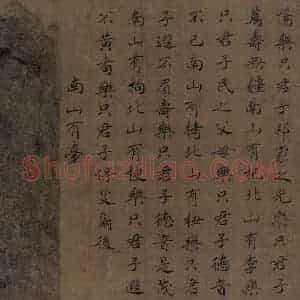 楊樂只君子邦家之光樂只君子
萬壽無疆南山有杞北山有李樂
只君子民之父母樂只君子德音
不已南山有栲北山有杻樂只君
子遐不眉壽樂只君子德音是茂
南山有枸北山有楰樂只君子遐
不黃耇樂只君子保艾爾後
南山有臺
Shufaziliao.com